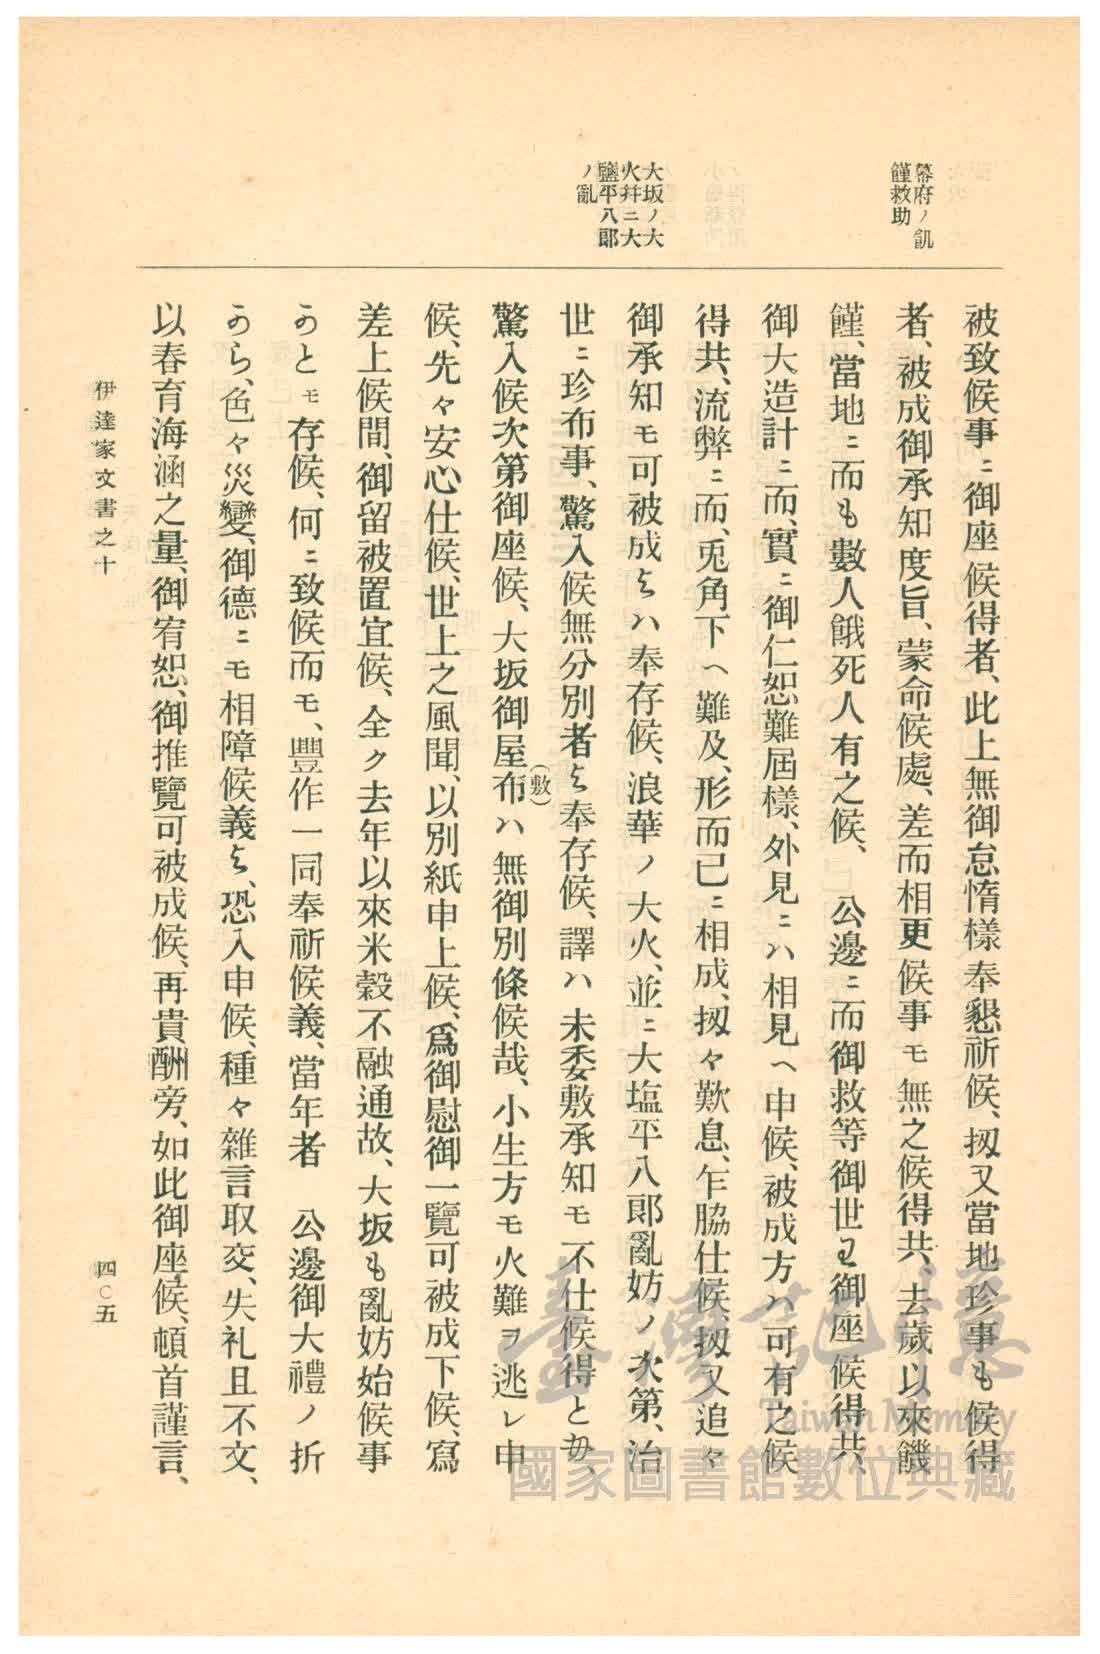 幕府ノ飢
饉救助
大坂ノ大
火幷ニ大
鹽平八郎
ノ亂
被致候事ニ御座候得者、此上無御怠惰樣奉懇祈候、扨又當地珍事も候得
者、被成御承知度旨、蒙命候處、差而相更候事モ無之候得共、去歲以來饑
饉、當地ニ而も數人餓死人有之候、　公邊ニ而御救等御世ゟ御座候得共、
御大造計ニ而、實ニ御仁恕難屆樣、外見ニハ相見ヘ申候、被成方ハ可有之候
得共、流弊ニ而、兎角下ヘ難及、形而已ニ相成、扨々歎息、乍脇仕候、扨又追々
御承知モ可被成とハ奉存候、浪華ノ大火、並ニ大塩平八郎亂妨ノ次第、治
世ニ珍布事、驚入候無分別者と奉存候、譯ハ未委敷承知モ不仕候得とも、
驚入候次第御座候、大坂御屋布ハ無御別條候哉、小生方モ火難ヲ逃レ申
（敷）
候、先々安心仕候、世上之風聞、以別紙申上候、爲御慰御一覽可被成下候、寫
差上候間、御留被置宜候、全ク去年以來米穀不融通故、大坂も亂妨始候事
かとモ存候、何ニ致候而モ、豐作一同奉祈候義、當年者　公邊御大禮ノ折
から、色々災變、御德ニモ相障候義と、恐入申候、種々雜言取交、失礼且不文、
以春育海涵之量、御宥恕、御推覽可被成候、再貴酬旁、如此御座候、頓首謹言、
伊達家文書之十
四〇五
臺灣記憶
Taiwan Memory
國家圖書館數位典藏